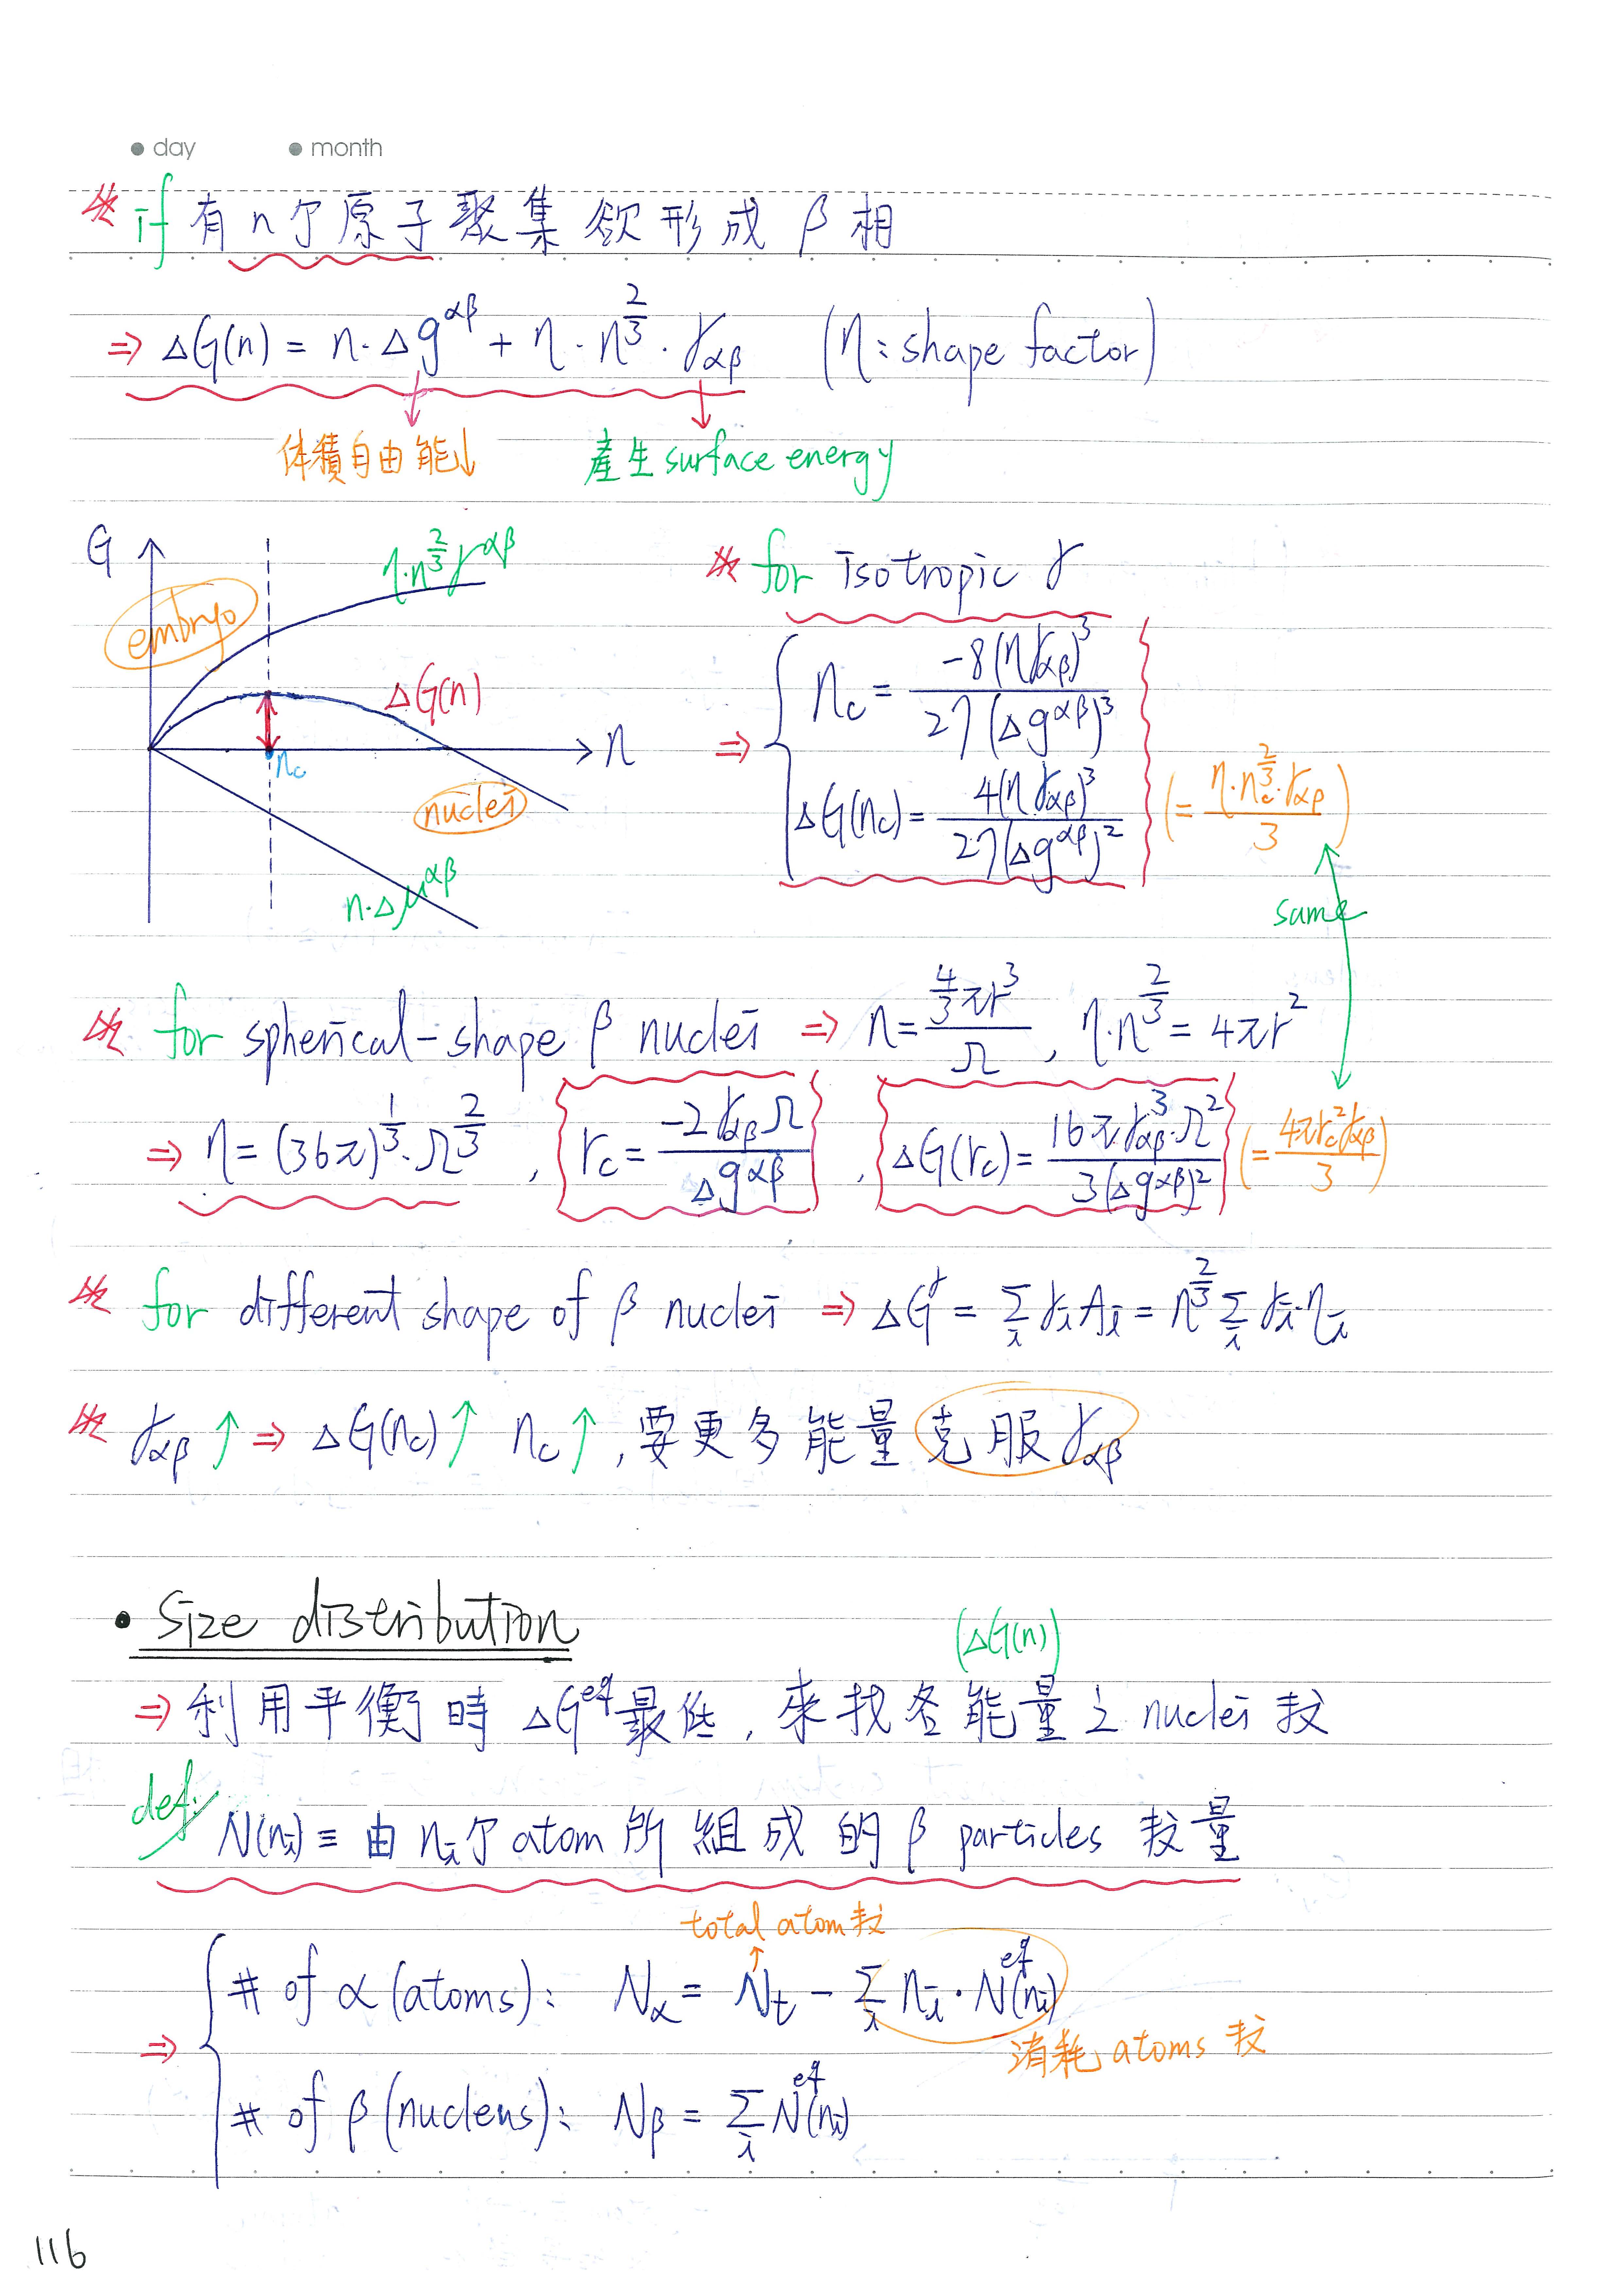 ● day ● month
※ if 有 n 个原子聚集欲形成 β 相
⇒ ΔG(n) = n·Δg^αβ + η·n^(2/3)·γ_αβ (η: shape factor)
体積自由能↓ 產生 surface energy
G
η·n^(2/3) γ^αβ
embryo
ΔG(n)
n
n_c
nuclei
n·Δμ^αβ
※ for isotropic γ
⇒ { n_c = -8(ηγ_αβ)^3 / 27(Δg^αβ)^3
ΔG(n_c) = 4(ηγ_αβ)^3 / 27(Δg^αβ)^2 (= η·n_c^(2/3)·γ_αβ / 3)
same
※ for spherical-shape β nuclei ⇒ n = (4/3)πr^3 / Ω , η·n^(2/3) = 4πr^2
⇒ η = (36π)^(1/3)·Ω^(2/3) , r_c = -2γ_αβ Ω / Δg^αβ , ΔG(r_c) = 16πγ_αβ^3·Ω^2 / 3(Δg^αβ)^2 (= 4πr_c^2 γ_αβ / 3)
※ for different shape of β nuclei ⇒ ΔG^γ = Σ_i γ_i A_i = n^(2/3) Σ_i γ_i·η_i
※ γ_αβ ↑ ⇒ ΔG(n_c)↑ n_c↑, 要更多能量克服 γ_αβ
• Size distribution
(ΔG(n))
⇒ 利用平衡時 ΔG^eq 最低, 來找各能量之 nuclei 数
def: N(n_i) ≡ 由 n_i 个 atom 所組成的 β particles 数量
total atom 数
⇒ { # of α (atoms): N_α = N_t - Σ_i n_i·N^eq(n_i)
消耗 atoms 数
# of β (nucleus): N_β = Σ_i N^eq(n_i)
116